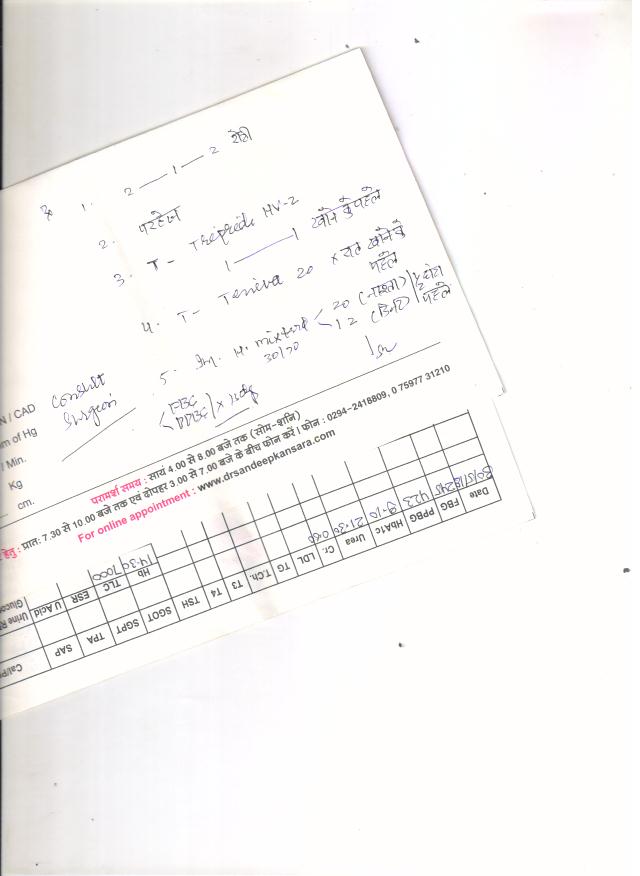 1. 2 — 1 — 2 रोटी
2. परहेज
3. T - HV-2
1 — 1 खाने के पहले
4. T - Teniva 20 x खाने के
पहले
5. Inj. H. mixtard 20 (नाश्ता)
30/70 12 (डिनर)
पहले
N / CAD Consult
m of Hg Surgeon
/ Min. FBG
Kg PPBG
cm.
परामर्श समय : सायं 4.00 से 8.00 बजे तक (सोम-शनि)
हेतु : प्रातः 7.30 से 10.00 बजे तक एवं दोपहर 3.00 से 7.00 बजे के बीच फोन करें। फोन : 0294-2418809, 0 75977 31210
For online appointment : www.drsandeepkansara.com
Date FBG PPBG HbA1c Urea Cr. LDL TG T.Ch. T3 T4 TSH SGOT SGPT TPA SAP
30/5/18 245 423 9.10 21.30 0.60
Hb TLC ESR U Acid Urine R
14.30 7000